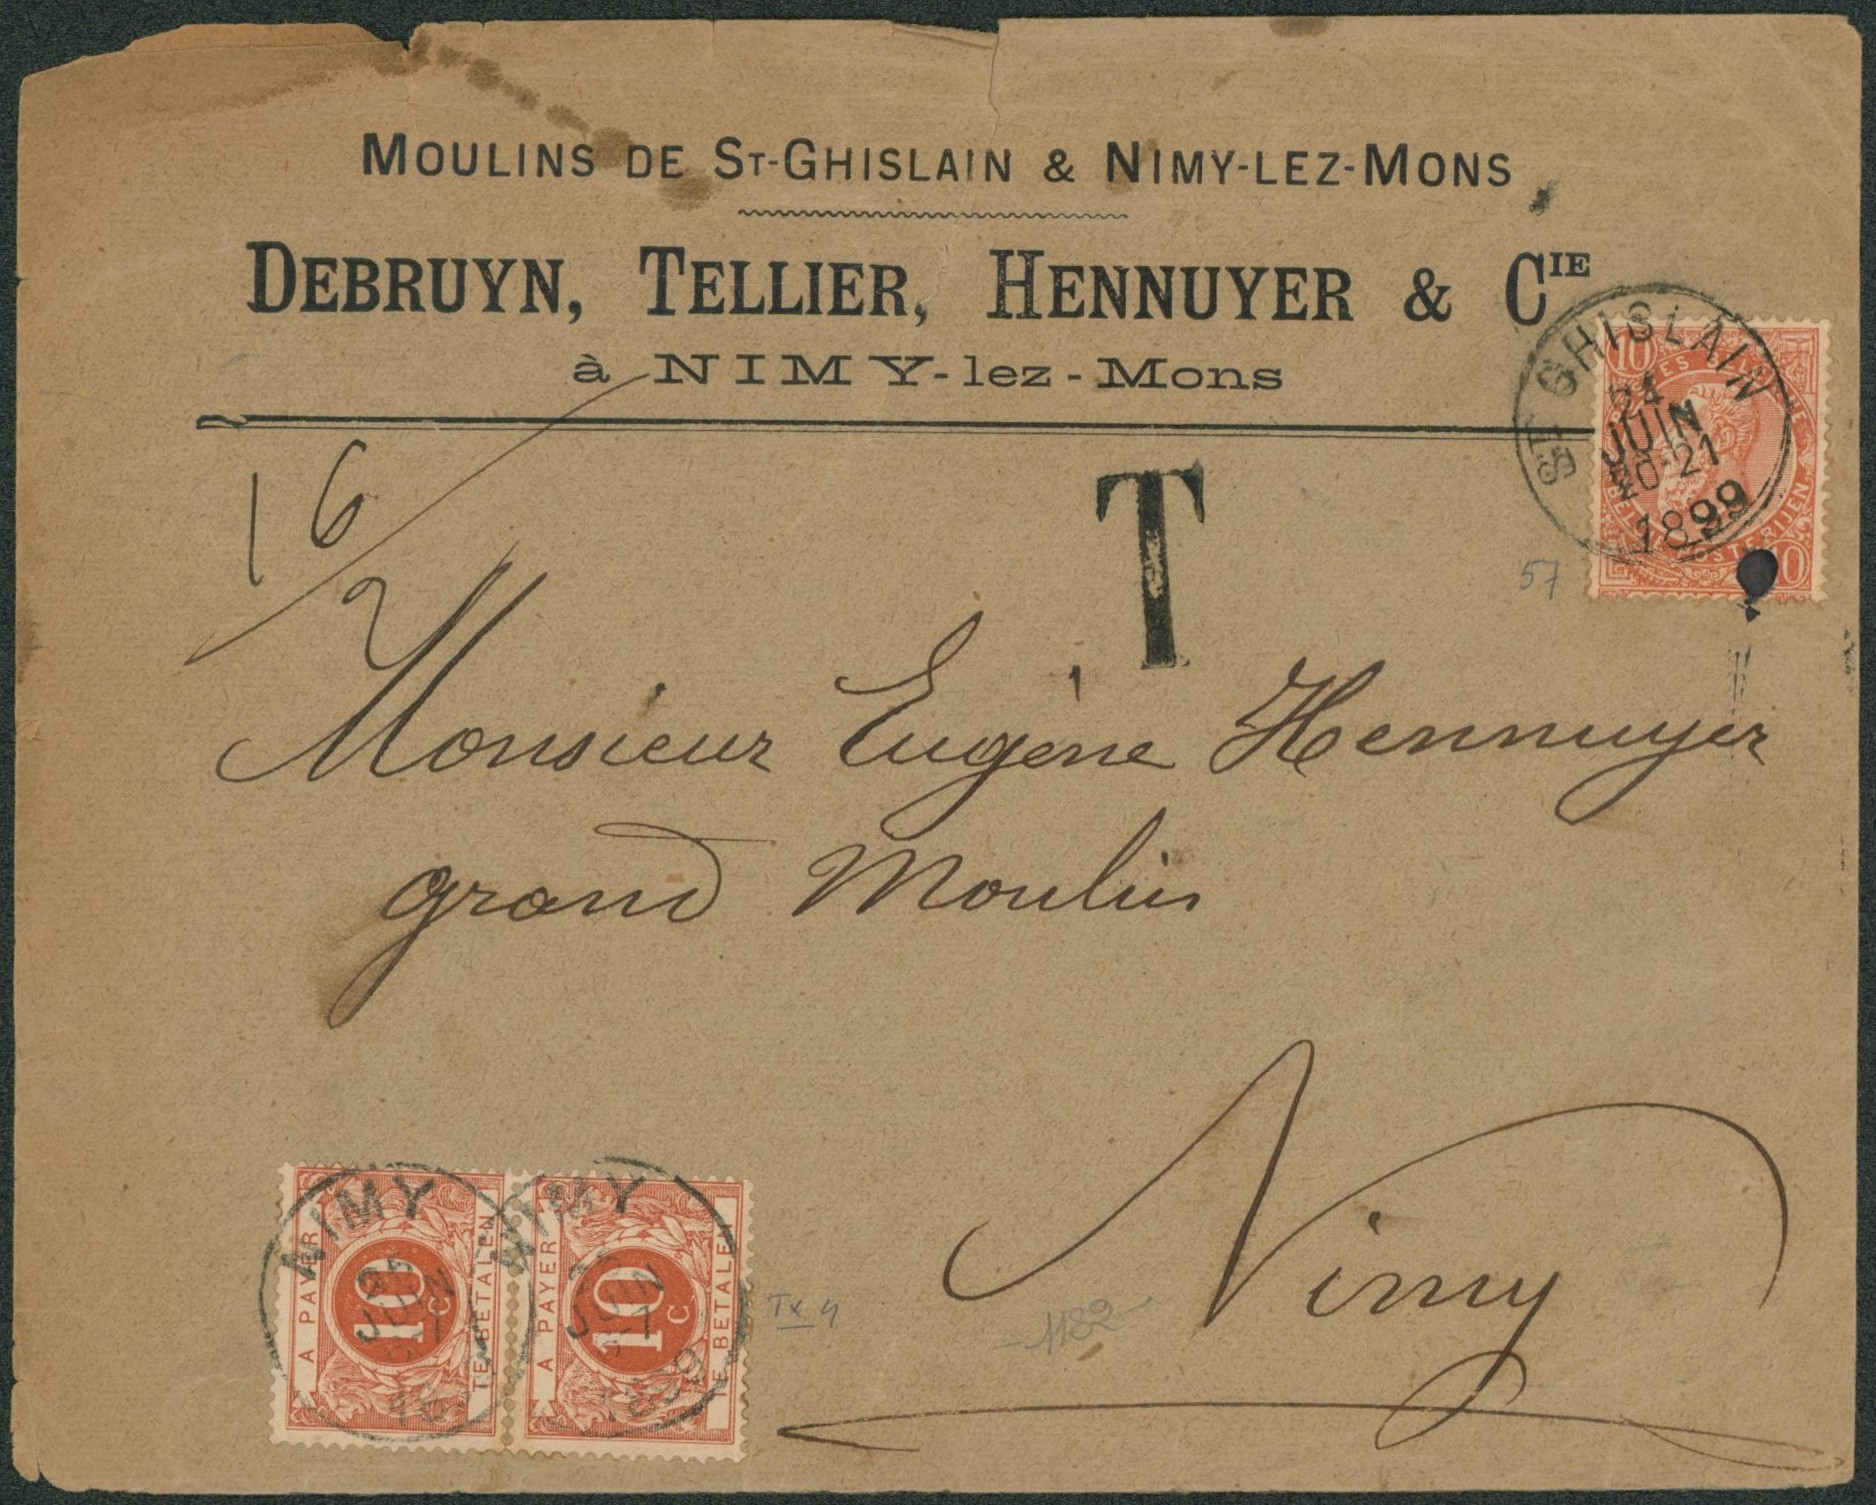 MOULINS DE ST-GHISLAIN & NIMY-LEZ-MONS
DEBRUYN, TELLIER, HENNUYER & CIE
à NIMY-lez-Mons
ST GHISLAIN
24
JUIN
20-21
1899
10
10
57
16/2
T
Monsieur Eugène Hennuyer
grand Moulin
Nimy
NIMY
JUIN
A PAYER
10 C
TE BETALEN
NIMY
JUIN
1899
A PAYER
10 C
TE BETALEN
Tx 4
1182